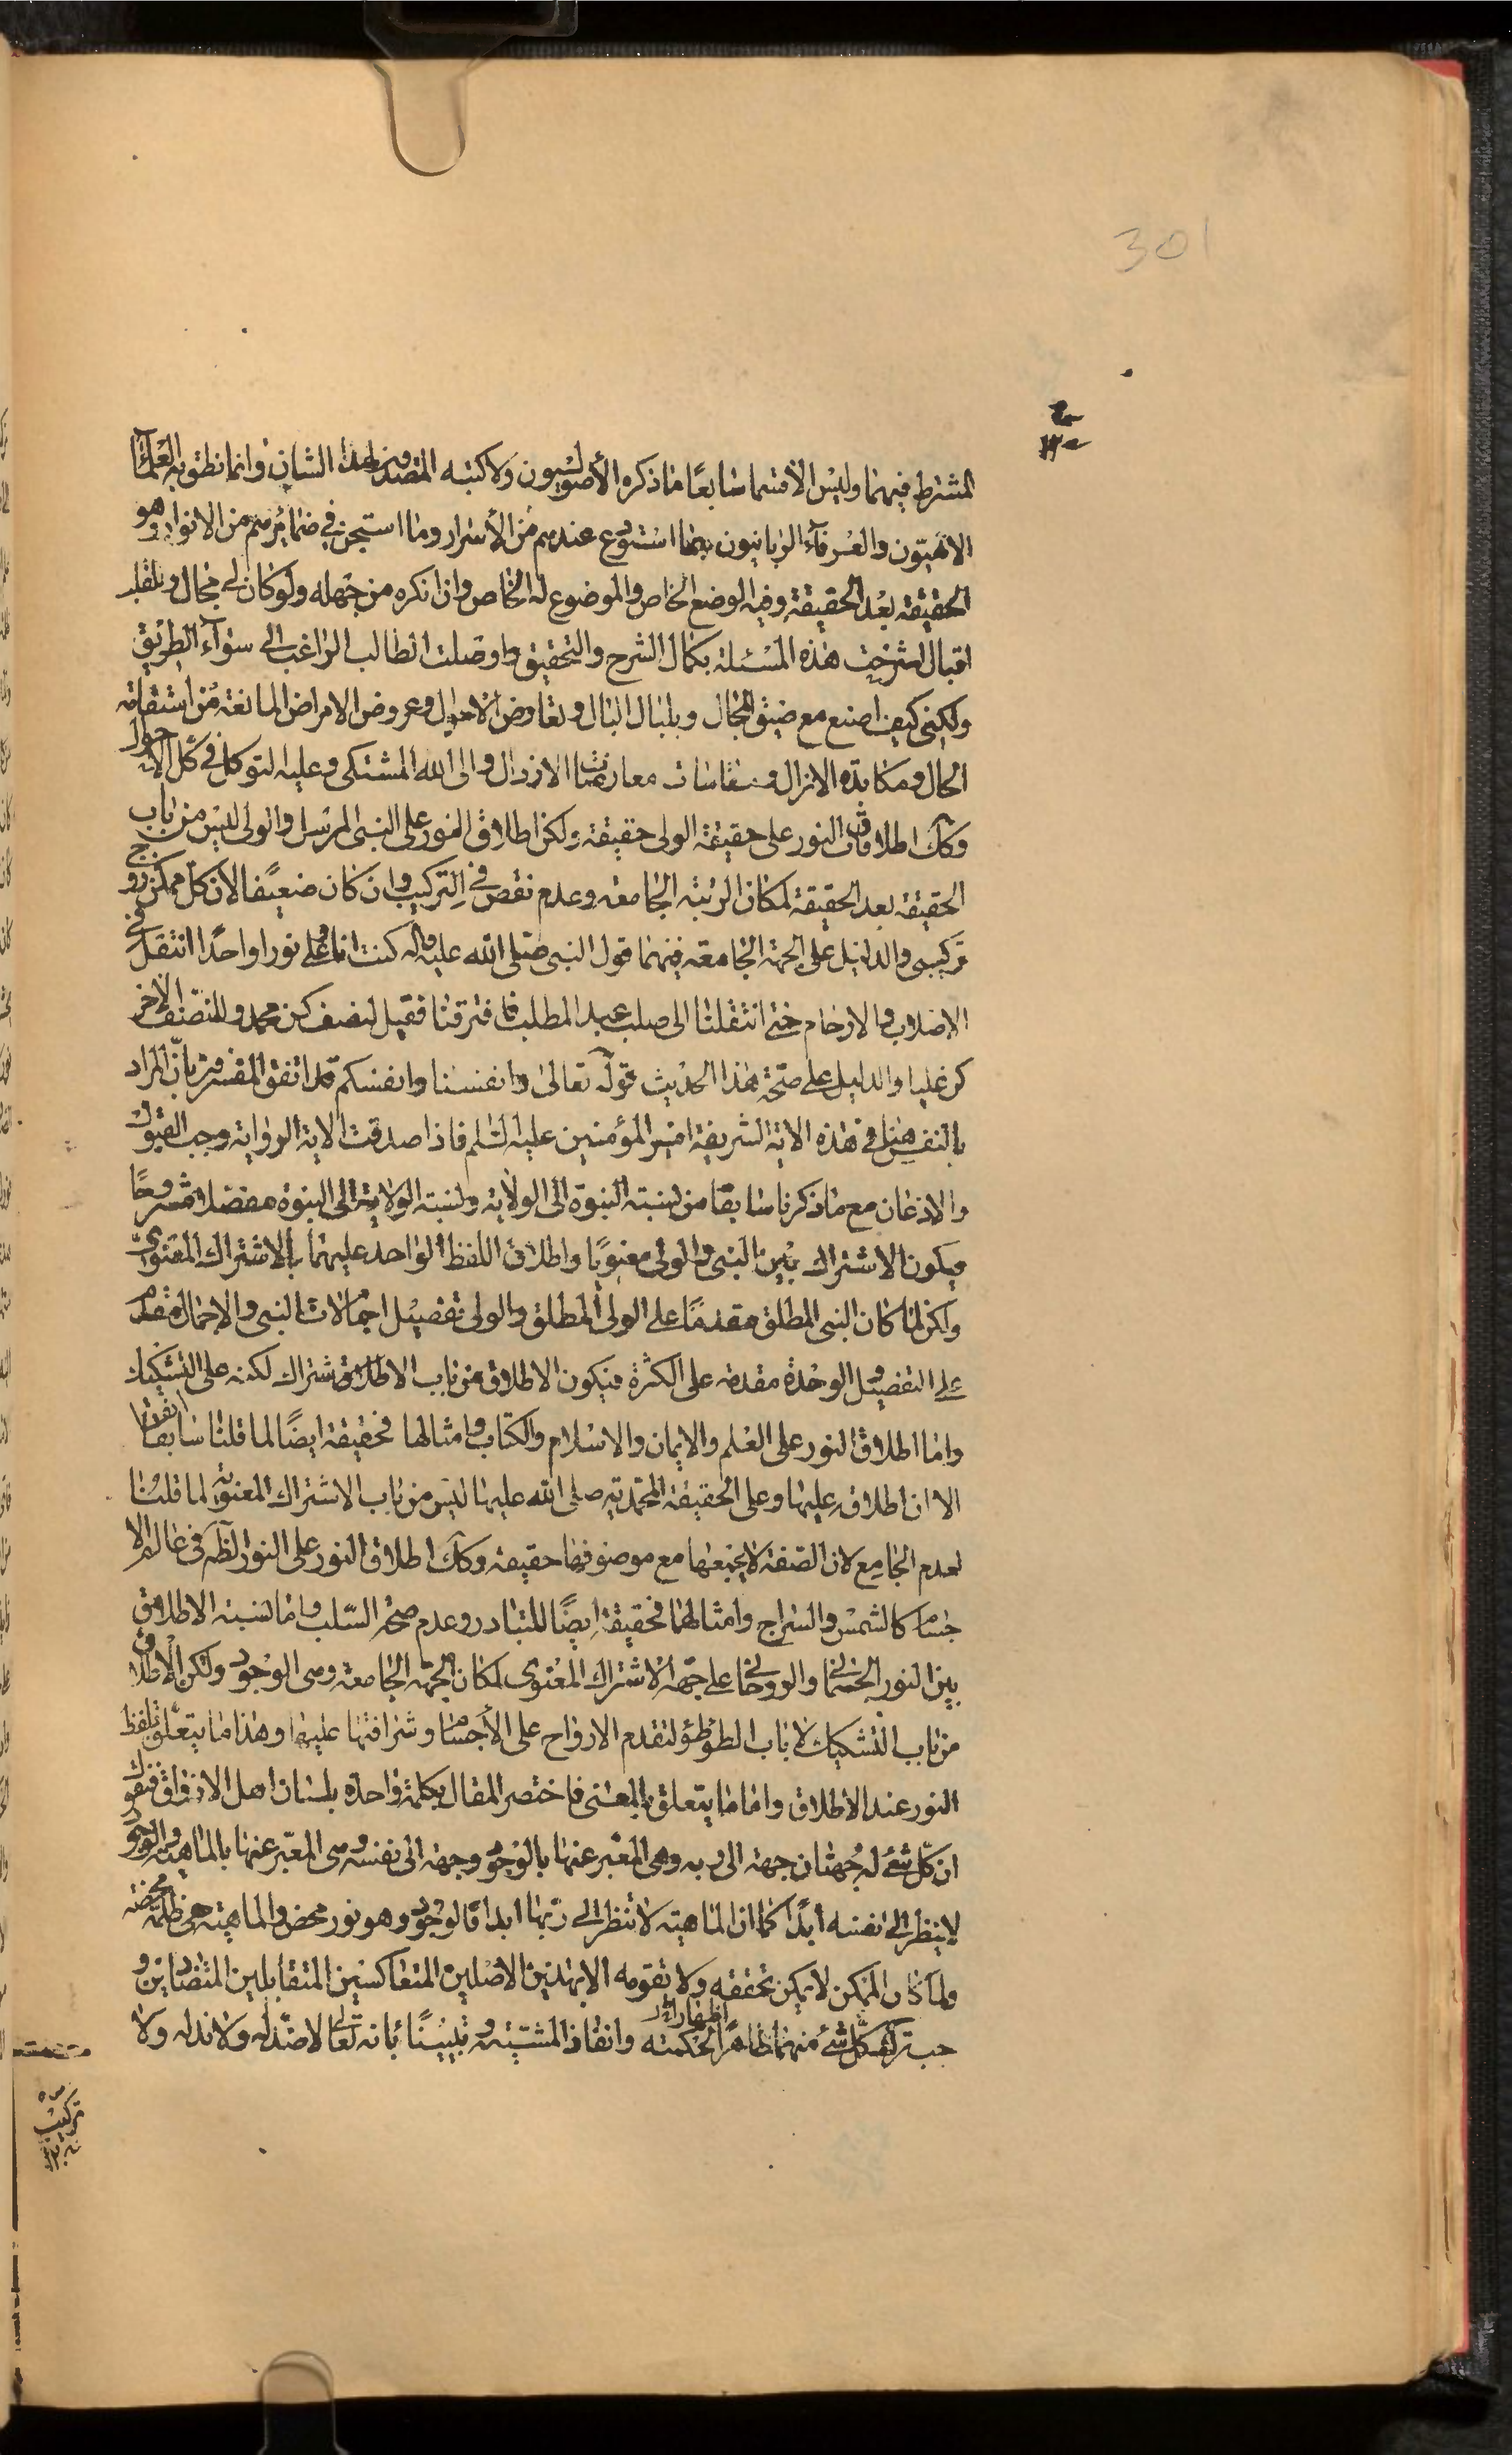 301
المشترط فيهما وليس الاقسما سابعًا ما ذكره الأصوليون ولا كتبه المتصدون لهذا الشان وانما نطق به العلمآء
الالهيون والعرفآء الربانيون بما استودع عندهم من الأسرار وما استجن في ضمايرهم من الانوار وهو
الحقيقة بعد الحقيقة وفيه الوضع الخاص والموضوع له الخاص وان انكره من جهله ولو كان لى مجال وللقلب
اقبال لشرحت هذه المسئلة بكمال الشرح والتحقيق واوصلت الطالب الراغب الى سوآء الطريق
ولكنى كيف اصنع مع ضيق المجال وبلبال البال وتعاوض الاحوال وعروض الامراض المانعة من استقامة
الحال ومكابدة الانزال ومقاسات معارضات الارذال والى الله المشتكى وعليه التوكل في كل الاحوال
وكك اطلاق النور على حقيقة الولى حقيقة ولكن اطلاق النور على النبى المرسل والولى ليس من باب
الحقيقة بعد الحقيقة لمكان الرتبة الجامعة وعدم نقص في التركيب وان كان ضعيفا لان كل ممكن زوج
تركيبى والدليل على الجهة الجامعة فيهما قول النبى صلى الله عليه وآله كنت انا وعلى نورا واحدًا انتقل في
الاصلاب والارحام حتى انتقلنا الى صلب عبد المطلب فافترقنا فقيل لنصف كن محمد وللنصف الاخر
كن عليا والدليل على صحة هذا الحديث قوله تعالى وانفسنا وانفسكم قد اتفق المفسرون بان المراد
بالنفس هنا في هذه الاية الشريفة امير المؤمنين عليه السلم فاذا صدقت الاية الرواية وجب القبول
والاذعان مع ما ذكرنا سابقا من نسبة النبوة الى الولاية ونسبة الولاية الى النبوة مفصلا مشروحًا
فيكون الاشتراك بين النبى والولى معنويًا واطلاق اللفظ الواحد عليهما بالاشتراك المعنوى
ولكن لما كان النبى المطلق مقدمًا على الولى المطلق والولى تفصيل اجمالات النبى والاجمال مقدم
على التفصيل والوحدة مقدمة على الكثرة فيكون الاطلاق من باب الاشتراك لكنه على التشكيك
واما اطلاق النور على العلم والايمان والاسلام والكتاب وامثالها فحقيقة ايضًا لما قلنا سابقا
الا ان اطلاقه عليها وعلى الحقيقة المحمدية صلى الله عليها ليس من باب الاشتراك المعنوى لما قلنا
لعدم الجامع لان الصفة لا يجمعها مع موصوفها حقيقة وكك اطلاق النور على النور الظاهر في عالم الا
جسام كالشمس والسراج وامثالهما فحقيقة ايضًا للتبادر وعدم صحة السلب واما نسبة الاطلاق
بين النور الجسمانى والروحانى على جهة الاشتراك المعنوى لمكان الجهة الجامعة وهى الوجود ولكن الاطلاق
من باب التشكيك لا باب التواطؤ لتقدم الارواح على الأجسام وشرافتها عليها وهذا ما يتعلق بلفظ
النور عند الاطلاق واما ما يتعلق بالمعنى فاختصر المقال بكلمة واحدة بلسان اهل الاذواق فنقول
ان كل شئ له جهتان جهة الى ربه وهى المعبر عنها بالوجود وجهة الى نفسه وهى المعبر عنها بالماهية والوجود
لا ينظر الى نفسه أبدًا كما ان الماهية لا تنظر الى ربها ابدا فالوجود وهو نور محض والماهية هى ظلمة محضة
ولما كان الممكن لا يمكن تحققه ولا تقومه الا بهذين الاصلين المتعاكسين المتقابلين المتضادين و
جب تركب كل شئ منهما اظهارا لامر الحكمة وانفاذ المشية وتبيينًا بانه تعالى لا ضد له ولا ند له ولا
تركيب